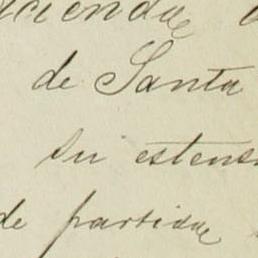 hacienda
de Santa
su estens
de partida